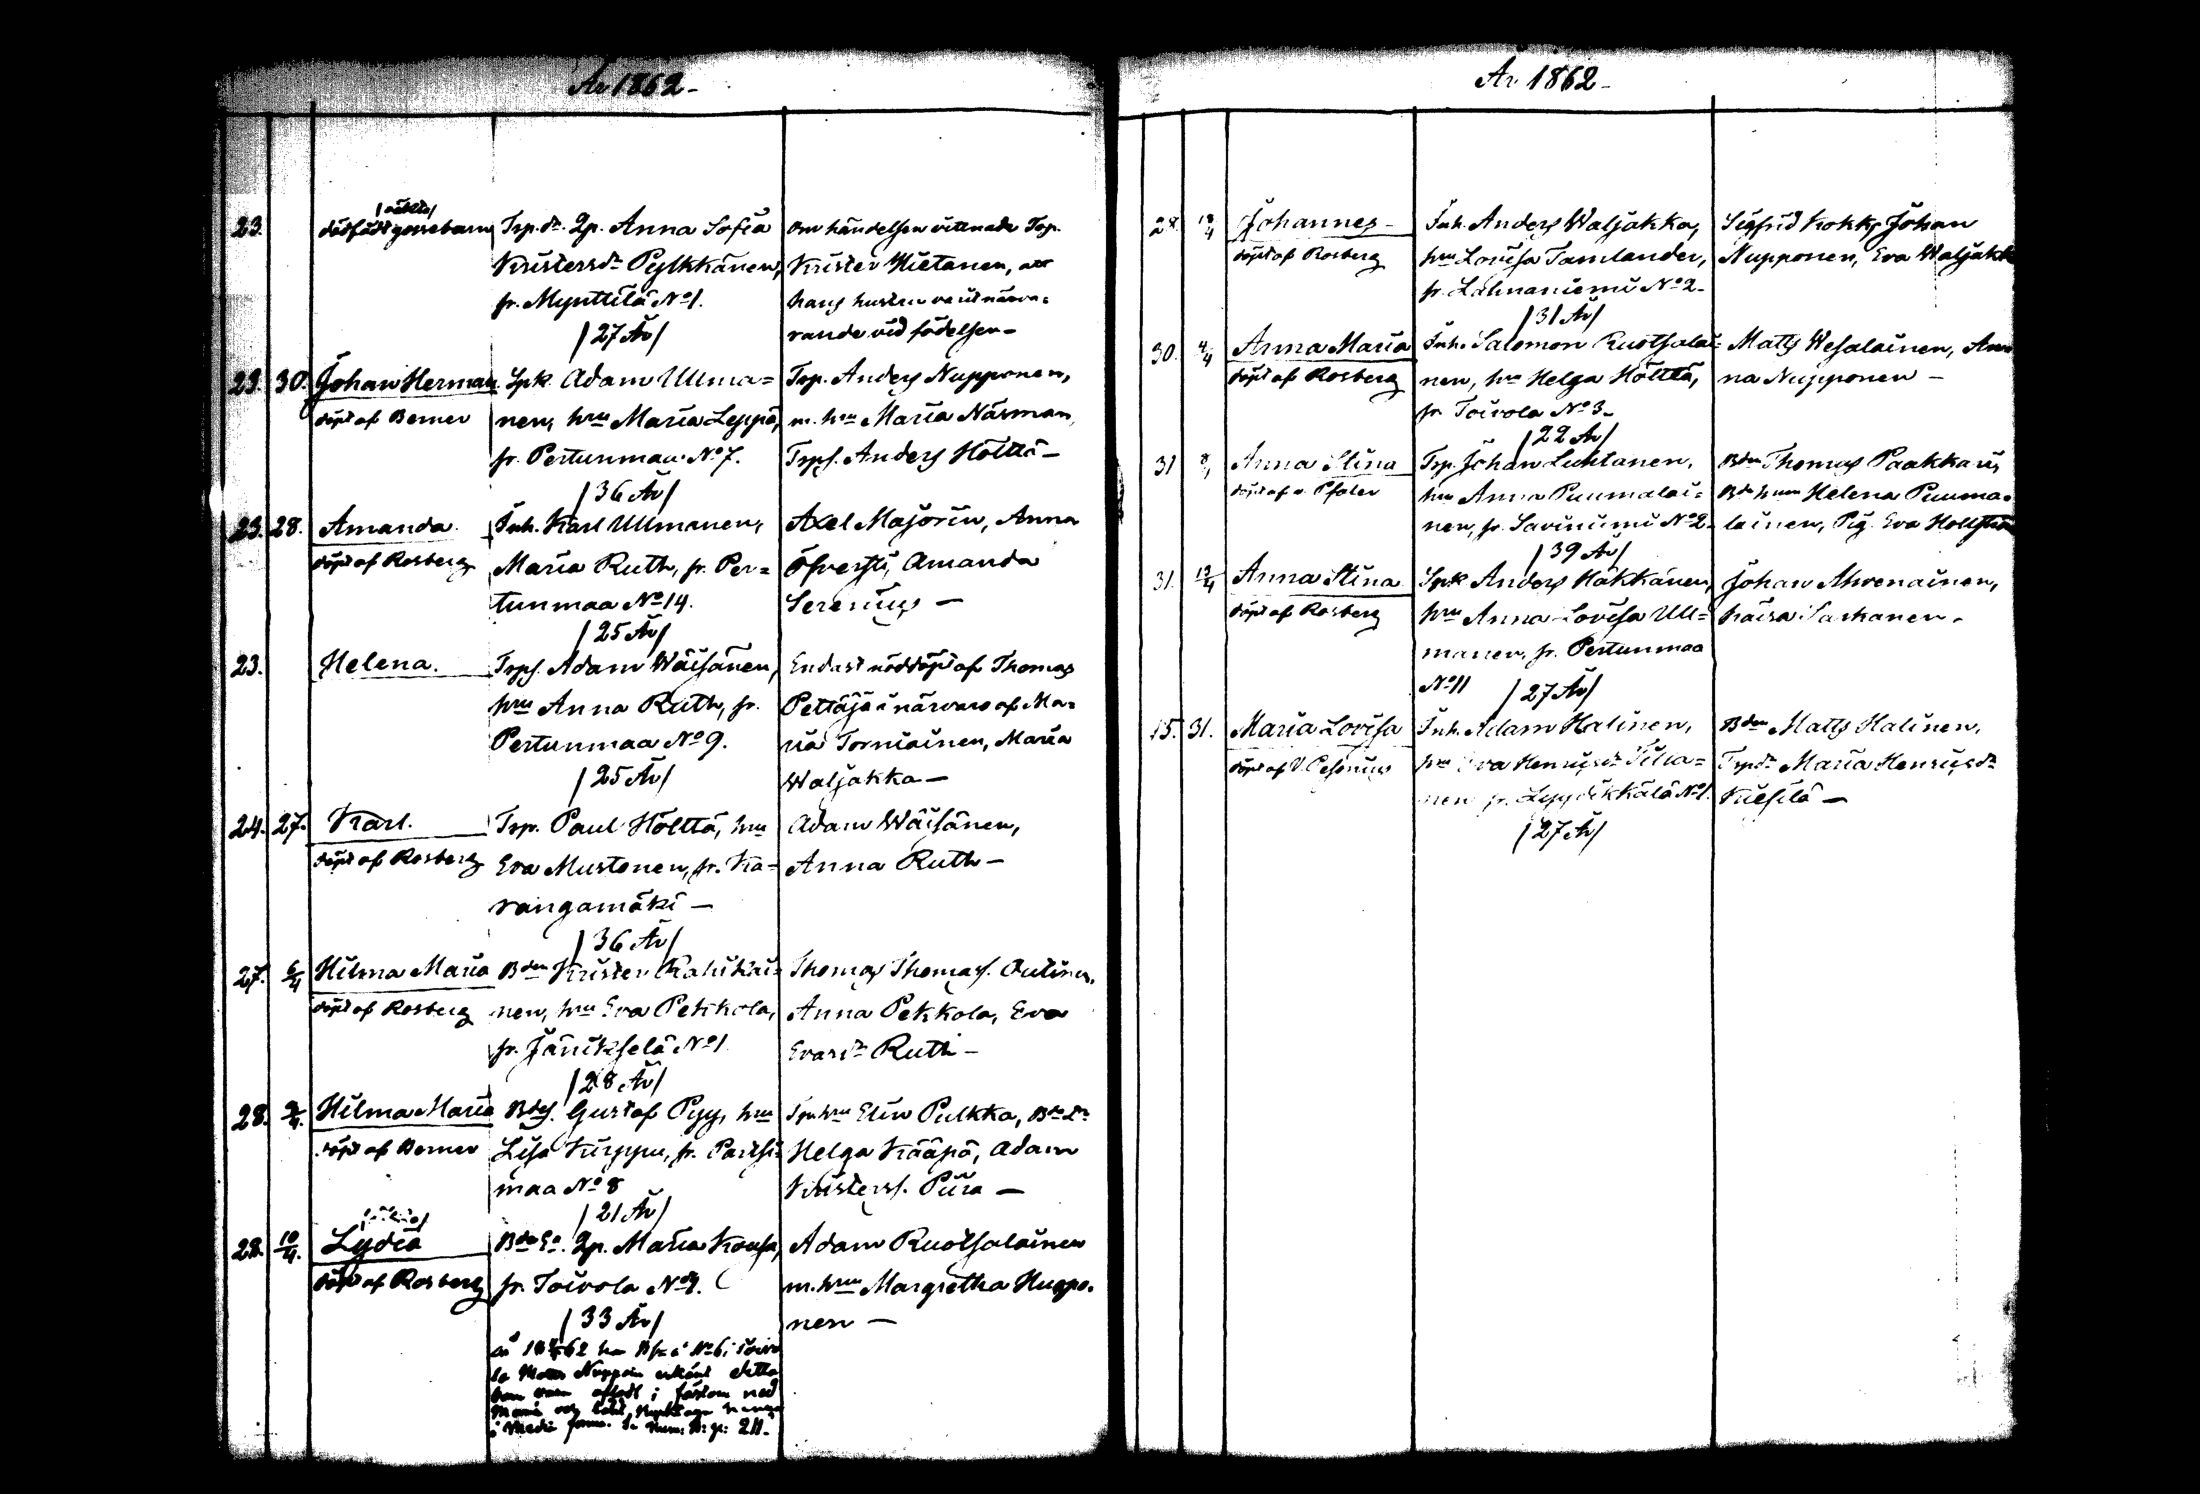 År 1862-
23.
/oäkta/
dödfödt gossebarn
Trp.dr. Qp. Anna Sofia
Kristersdr Pylkkänen,
fr. Mynttilä No 1.
/27 År/
Om händelsen vittnade Trp.
Krister Hietanen, att
hans hustru varit närva=
rande vid födelsen-
23. 30. Johan Herman
döpt af Berner
Spk. Adam Ullma=
nen, hru Maria Leppä,
fr. Pertunmaa No 7.
/36 År/
Trp. Anders Nupponen,
m. hru Maria Näsman,
Trps. Anders Hölttä-
23. 28. Amanda.
döpt af Rosberg
Inh. Karl Ullmanen,
Maria Ruth, fr. Per=
tunmaa No 14.
/25 År/
Axel Majorin, Anna
Öfversti, Amanda
Serenius-
23. Helena.
Trps. Adam Wäisänen,
hru Anna Ruth, fr.
Pertunmaa No 9.
/25 År/
Endast nöddöpt af Thomas
Pettäjä i närvaro af Ma=
ria Torniainen, Maria
Waljakka-
24. 27. Karl.
döpt af Rosberg
Trp. Paul Hölttä, hru
Eva Mustonen, fr. Ka=
rangamäki-
/36 År/
Adam Wäisänen,
Anna Ruth-
27. 6/4 Hilma Maria
döpt af Rosberg
Bden Krister
nen, hru Eva Pekkola,
fr. Jänikselä No 1.
/28 År/
Thomas Thomass. Outinen,
Anna Pekkola, Eva
Evasdr Ruth-
28. 2/4. Hilma Maria
döpt af Berner
Bdes. Gustaf Pyy, hru
Lisa Kurppu, fr.
maa No 8
/21 År/
hru Elin Pulkka, Bdedr
Helga Kääpä, Adam
Kristerss. Piira-
28. 10/4. Lydia
döpt af Rosberg
Qp. Maria
fr. Toivola No
/33 År/
Adam Ruotsalainen
m. hru Margretha Huppo.
nen-
År 1862-
28. Johannes-
döpt af Rosberg
Inh. Anders Waljakka,
hru Lovisa Tamlander,
fr. Lahnaniemi No 2-
/31 År/
Sigfrid Kokki, Johan
Nupponen, Eva Waljakk
30. 4/4 Anna Maria
döpt af Rosberg
Inh. Salomon Ruotsalai=
nen, hru Helga Hölttä,
fr. Toivola No 3-
/22 År/
Matts Wesalainen, An
na Nupponen-
31 Anna Stina
döpt af v. Pfaler
Trp. Johan Luhtanen,
hru Anna Puumalai=
nen, fr. Saviniemi No 2-
/39 År/
Bden Thomas Paakkari,
Helena Puuma=
lainen, Pig. Eva
31. Anna Stina
döpt af Rosberg
Spk Anders Häkkänen,
hru Anna Lovisa Ull=
manen, fr. Pertunmaa
No 11
/27 År/
Johan Ahvenainen,
Kaisa Sarkanen-
15. 31. Maria Lovisa
döpt af V. Cesenius
Inh. Adam Halinen,
hru Eva Henricsdr
nen fr. Leppäkkälä No 1.
/27 År/
Bden Matts Halinen,
Trpdr Maria Henricsdr